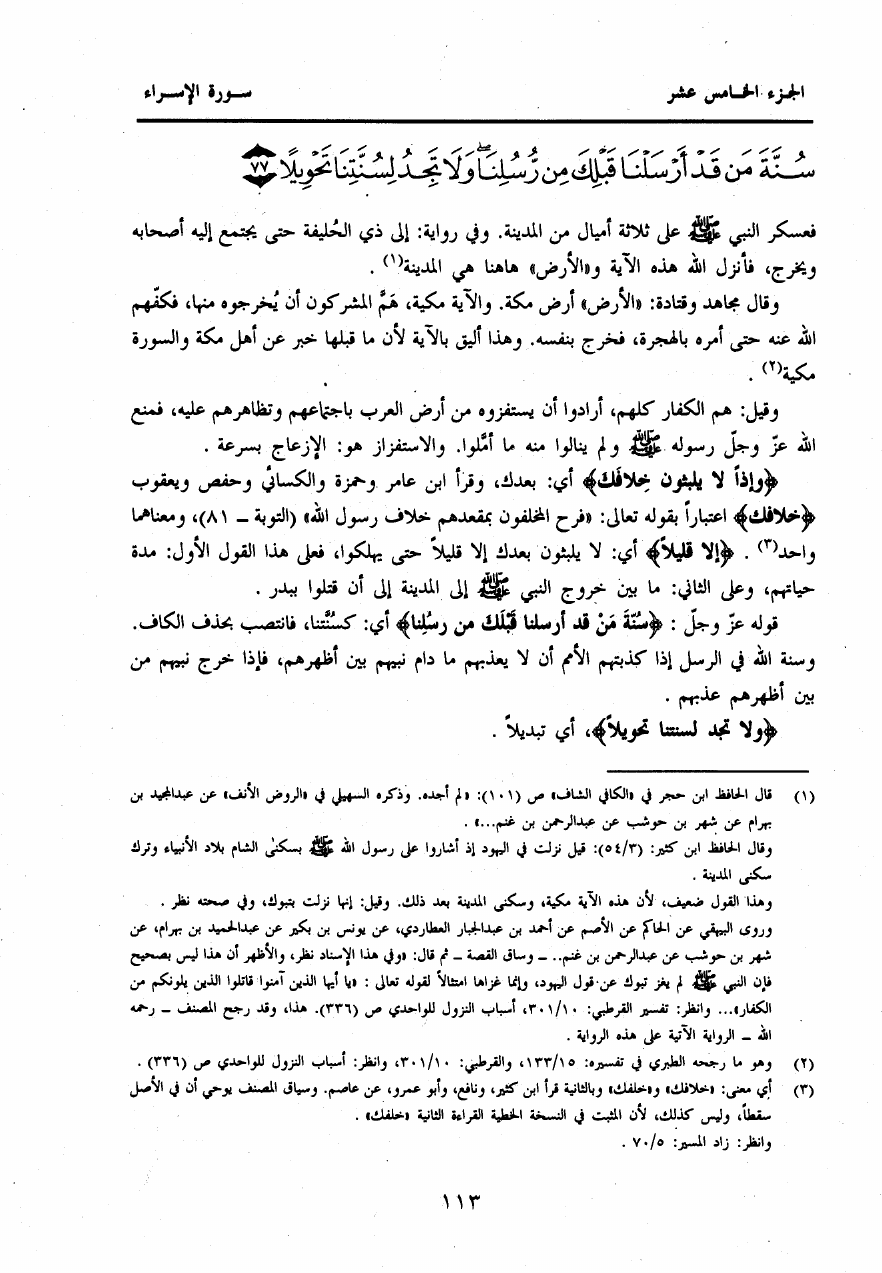 الجزء الخامس عشر
سورة الإسراء
سُنَّةَ مَن قَدْ أَرْسَلْنَا قَبْلَكَ مِن رُّسُلِنَا ۖ وَلَا تَجِدُ لِسُنَّتِنَا تَحْوِيلًا ٧٧
فعسكر النبي ﷺ على ثلاثة أميال من المدينة. وفي رواية: إلى ذي الحُليفة حتى يجتمع إليه أصحابه
ويخرج، فأنزل الله هذه الآية و«الأرض» هاهنا هي المدينة(١) .
وقال مجاهد وقتادة: «الأرض» أرض مكة. والآية مكية، هَمَّ المشركون أن يُخرجوه منها، فكفّهم
الله عنه حتى أمره بالهجرة، فخرج بنفسه. وهذا أليق بالآية لأن ما قبلها خبر عن أهل مكة والسورة
مكية(٢) .
وقيل: هم الكفار كلهم، أرادوا أن يستفزوه من أرض العرب باجتماعهم وتظاهرهم عليه، فمنع
الله عزّ وجلّ رسوله ﷺ ولم ينالوا منه ما أمَّلوا. والاستفزاز هو: الإزعاج بسرعة .
﴿وإذاً لا يلبثون خِلافَك﴾ أي: بعدك، وقرأ ابن عامر وحمزة والكسائي وحفص ويعقوب
﴿خلافك﴾ اعتباراً بقوله تعالى: «فرح المخلفون بمقعدهم خلاف رسول الله» (التوبة – ٨١)، ومعناهما
واحد(٣) . ﴿إلا قليلاً﴾ أي: لا يلبثون بعدك إلا قليلاً حتى يهلكوا، فعلى هذا القول الأول: مدة
حياتهم، وعلى الثاني: ما بين خروج النبي ﷺ إلى المدينة إلى أن قتلوا ببدر .
قوله عزّ وجلّ : ﴿سُنّةَ مَنْ قد أرسلنا قَبْلَكَ من رسُلِنا﴾ أي: كسُنَّتنا، فانتصب بحذف الكاف.
وسنة الله في الرسل إذا كذبتهم الأمم أن لا يعذبهم ما دام نبيهم بين أظهرهم، فإذا خرج نبيهم من
بين أظهرهم عذبهم .
﴿ولا تجد لسنتنا تحويلاً﴾، أي تبديلاً .
(١) قال الحافظ ابن حجر في «الكافي الشاف» ص (١٠١): «لم أجده. وذكره السهيلي في «الروض الأنف» عن عبدالمجيد بن
بهرام عن شهر بن حوشب عن عبدالرحمن بن غنم...» .
وقال الحافظ ابن كثير: (٥٤/٣): قيل نزلت في اليهود إذ أشاروا على رسول الله ﷺ بسكنى الشام بلاد الأنبياء وترك
سكنى المدينة .
وهذا القول ضعيف، لأن هذه الآية مكية، وسكنى المدينة بعد ذلك. وقيل: إنها نزلت بتبوك، وفي صحته نظر .
وروى البيهقي عن الحاكم عن الأصم عن أحمد بن عبدالجبار العطاردي، عن يونس بن بكير عن عبدالحميد بن بهرام، عن
شهر بن حوشب عن عبدالرحمن بن غنم.. – وساق القصة – ثم قال: «وفي هذا الإسناد نظر، والأظهر أن هذا ليس بصحيح
فإن النبي ﷺ لم يغز تبوك عن قول اليهود، وإنما غزاها امتثالاً لقوله تعالى : «يا أيها الذين آمنوا قاتلوا الذين يلونكم من
الكفار»... وانظر: تفسير القرطبي: ٣٠١/١٠، أسباب النزول للواحدي ص (٣٣٦). هذا، وقد رجح المصنف – رحمه
الله – الرواية الآتية على هذه الرواية .
(٢) وهو ما رجحه الطبري في تفسيره: ١٣٣/١٥، والقرطبي: ٣٠١/١٠، وانظر: أسباب النزول للواحدي ص (٣٣٦) .
(٣) أي معنى: «خلافك» و«خلفك» وبالثانية قرأ ابن كثير، ونافع، وأبو عمرو، عن عاصم. وسياق المصنف يوحي أن في الأصل
سقطاً، وليس كذلك، لأن المثبت في النسخة الخطية القراءة الثانية «خلفك» .
وانظر: زاد المسير: ٧٠/٥ .
١١٣